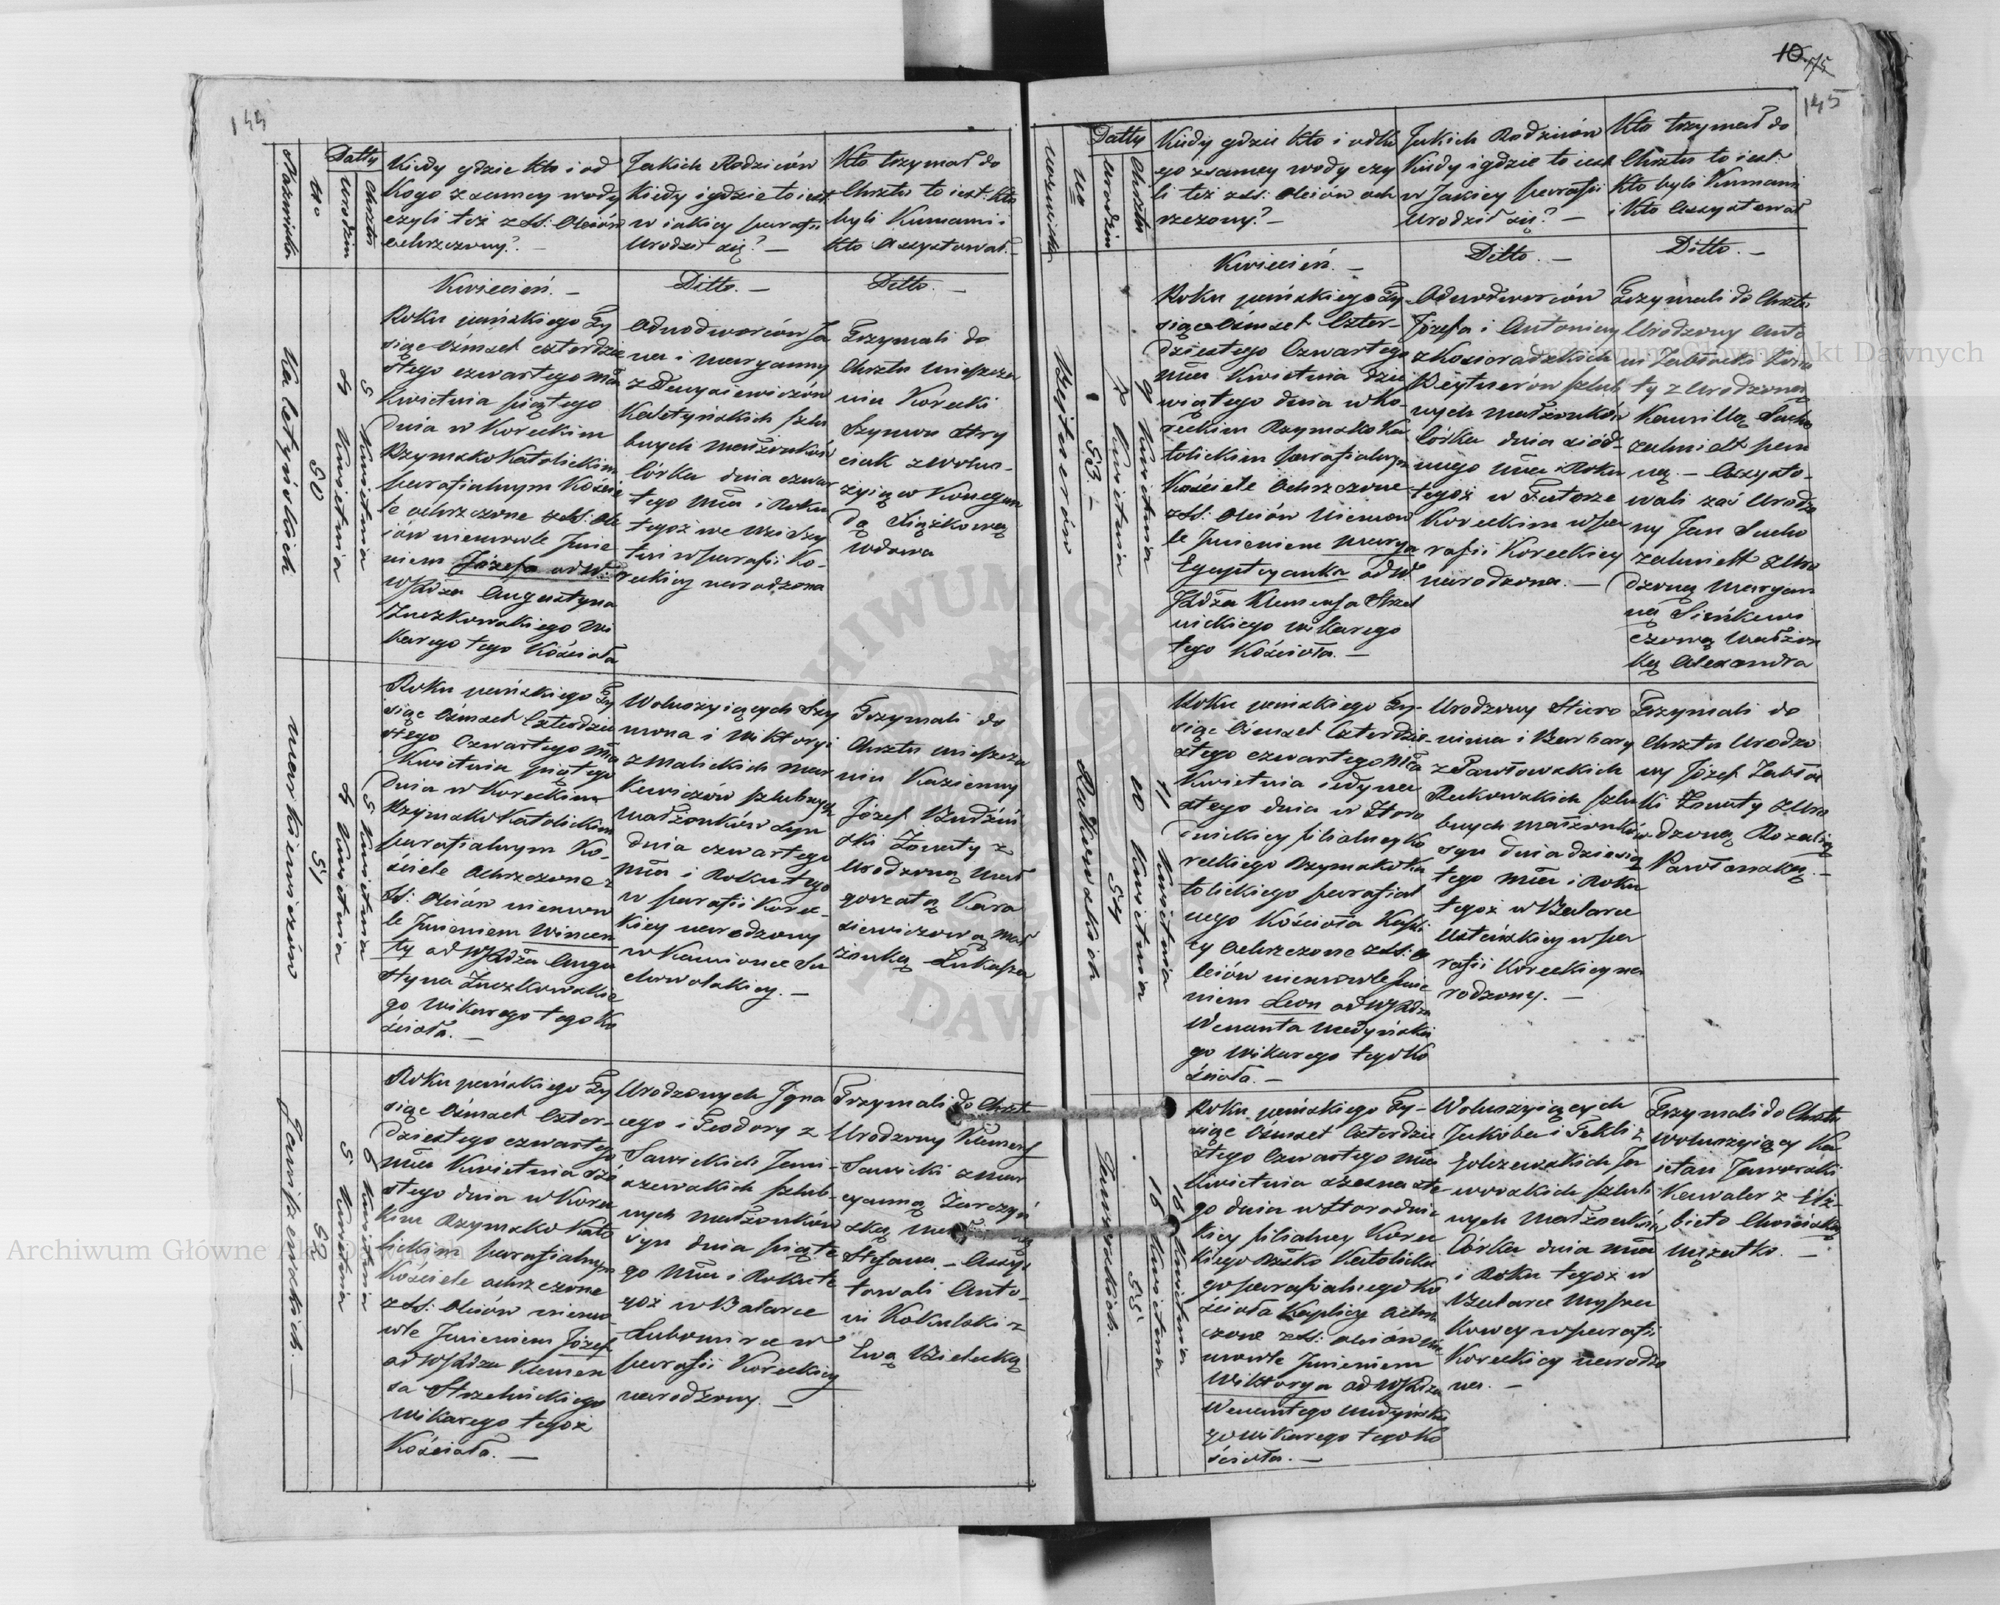 144
Nazwiska
No
Datty
Urodzin
Chrztu
Kiedy gdzie kto i od
kogo z samey wody
czyli też z SS: Oleiów
ochrzczony? —
Jakich Rodziców
kiedy i gdzie to iest
w iakiey parafii
urodził się? —
Kto trzymał do
Chrztu to iest: kto
byli Kumami i
kto Assystował. —
Kwiecień. —
Ditto. —
Ditto. —
50
4 Kwietnia
5 Kwietnia
Roku pańskiego Ty
siąc Ośmset czterdzie
stego czwartego Mca
Kwietnia piątego
dnia w Koreckim
Rzymsko Katolickim
parafialnym Koście
le ochrzczone z SS: Ole
iów niemowle Imie
niem Józefa od W:
W JXdza Augustyna
Zuczkowskiego Wi
karego tego Kościoła
Odnodworców Ja
na i Maryanny
bnych Małżonków
Córka dnia czwar
tego Mca i Roku
tegoż we Wsi
w parafii Ko-
reckiey narodzona
Trzymali do
Chrztu Mieszcza
nin Korecki
Szymon
z
w Kunegun
dą
wdową
Markiewiczów
51
4 Kwietnia
5 Kwietnia
Roku pańskiego Ty
siąc Ośmset Czterdzie
stego Czwartego Mca
Kwietnia piątego
dnia w Koreckim
Rzymsko Katolickim
parafialnym Ko-
ściele Ochrzczone z
SS: Oleiów niemow
le Imieniem Wincen
ty od W JXdza Augu
styna Zuczkowskie
go Wikarego tego Ko
ścioła. —
Wolnożyiących Szy
mona i Wiktoryi
z Malickich Mar
kewiczów szlubnych
małżonków syn
dnia czwartego
Mca i Roku tego
w parafii Korec-
kiey narodzony
w Kamionce Su
chowolskiey. —
Trzymali do
Chrztu mieszcza
nin Kazimierz
Józef
ski Zonaty z
Urodzoną Mał
gorzatą Kara
siewiczową Mał
żonką Łukasza
Janiszewskich. —
52
5 Kwietnia
6 Kwietnia
Roku pańskiego Ty
siąc Ośmset Czter-
dziestego czwartego
Mca Kwietnia szó
stego dnia w Korec
kim Rzymsko Kato
lickim parafialnym
Kościele ochrzczone
z SS: Oleiów niemo
wle Imieniem Józef
od W JXdza Klemen
sa Strzelnickiego
Wikarego tegoż
Kościoła. —
Urodzonych Igna
cego i Teodory z
Sawickich Jani-
szewskich szlub-
nych Małżonków
syn dnia piąte
go Mca i Roku te
goż w Bałarce
Lubomirce w
parafii Koreckiey
narodzony. —
Trzymali do Chrztu
Urodzony Klemens
Sawicki z Mar
yanną
ską
Stefana. — Assys
towali Anto-
ni Kokulski z
Ewą Bielecką
10
145
Nazwiska
No
Datty
Urodzin
Chrztu
Kiedy gdzie kto i od ko
go z samey wody czy
li też z SS: Oleiów och
rzczony? —
Jakich Rodziców
Kiedy i gdzie to iest
w Jakiey parafii
Urodził się? —
Kto trzymał do
Chrztu to iest
kto byli Kumami
i kto Assystował
Kwiecień. —
Ditto. —
Ditto. —
Reytnerów
53. —
7 Kwietnia
9 Kwietnia
Roku pańskiego Ty
siąc Ośmset Czter-
dziestego Czwartego
Mca Kwietnia dzie
wiątego dnia w Ko-
reckim Rzymsko Ka
tolickim parafialnym
Kościele ochrzczone
z SS: Oleiów niemow
le Imieniem Marya
Egiptcyanka od W:
JXdza Klemensa Strzel
nickiego Wikarego
tego Kościoła. —
Odnodworców
Józefa i Antoniny
z
Reytnerów szlub
nych małżonków
Córka dnia siód
mego Mca i Roku
tegoż w Futorze
Koreckim w pa
rafii Koreckiey
narodzona. —
Trzymali do Chrztu
Urodzony Anto
ni
z Urodzoną
Kamillą Sucho
zanną —
Assysto-
wali zaś Urodzo
ny Jan Sucho
z Uro
dzoną Maryan
ną Sieńkiewi
czową Małżon
ką Alexandra
Rutkowskich
54
10 Kwietnia
11 Kwietnia
Roku pańskiego Ty-
siąc Ośmset Czterdzie-
stego czwartego Mca
Kwietnia iedyna
stego dnia w Storo
dnickiey filialney Ko
reckiego Rzymsko Ka
tolickiego parafial
nego Kościoła Kapli
cy ochrzczone z SS: O
leiów niemowle Imie
niem Leon od W JXdza
Wenanta Medyńskie
go Wikarego tego Ko
ścioła. —
Urodzony Hiero
nima i Barbary
z Pawłowskich
Rutkowskich szlub
bnych małżonków
syn dnia dziesią
tego Mca i Roku
tegoż w Bałarce
Usteńskiey w pa
rafii Koreckiey na
rodzony. —
Trzymali do
Chrztu Urodzo
ny Józef
ki Zonaty z Uro
dzoną Rozalią
Pawłowską. —
Jaworskich. —
55
16 Kwietnia
16 Kwietnia
Roku pańskiego Ty-
siąc Ośmset Czterdzie
stego Czwartego Mca
Kwietnia szesnaste
go dnia w Storodnic
kiey filialney Korec
kiego Rzsko Katolickie
go parafialnego Ko
ścioła Kaplicy ochrz
czone z SS: Oleiów nie
mowle Imieniem
Wiktorya od W JXdza
Wenantego Medyńskie
go Wikarego tego Ko
ścioła. —
Wolnożyiących
Jakóba i Tekli z
Ja
worskich szlub
nych Małżonków
Córka dnia Mca
i Roku tegoż w
Bałarce
w parafii
Koreckiey narodzo
na. —
Trzymali do Chrztu
Wolnożyiący Ka
ietan Jaworski
Kawaler z Elż-
bietą
mężatką. —
Archiwum Główne Akt Dawnych
Archiwum Główne Akt Dawnych